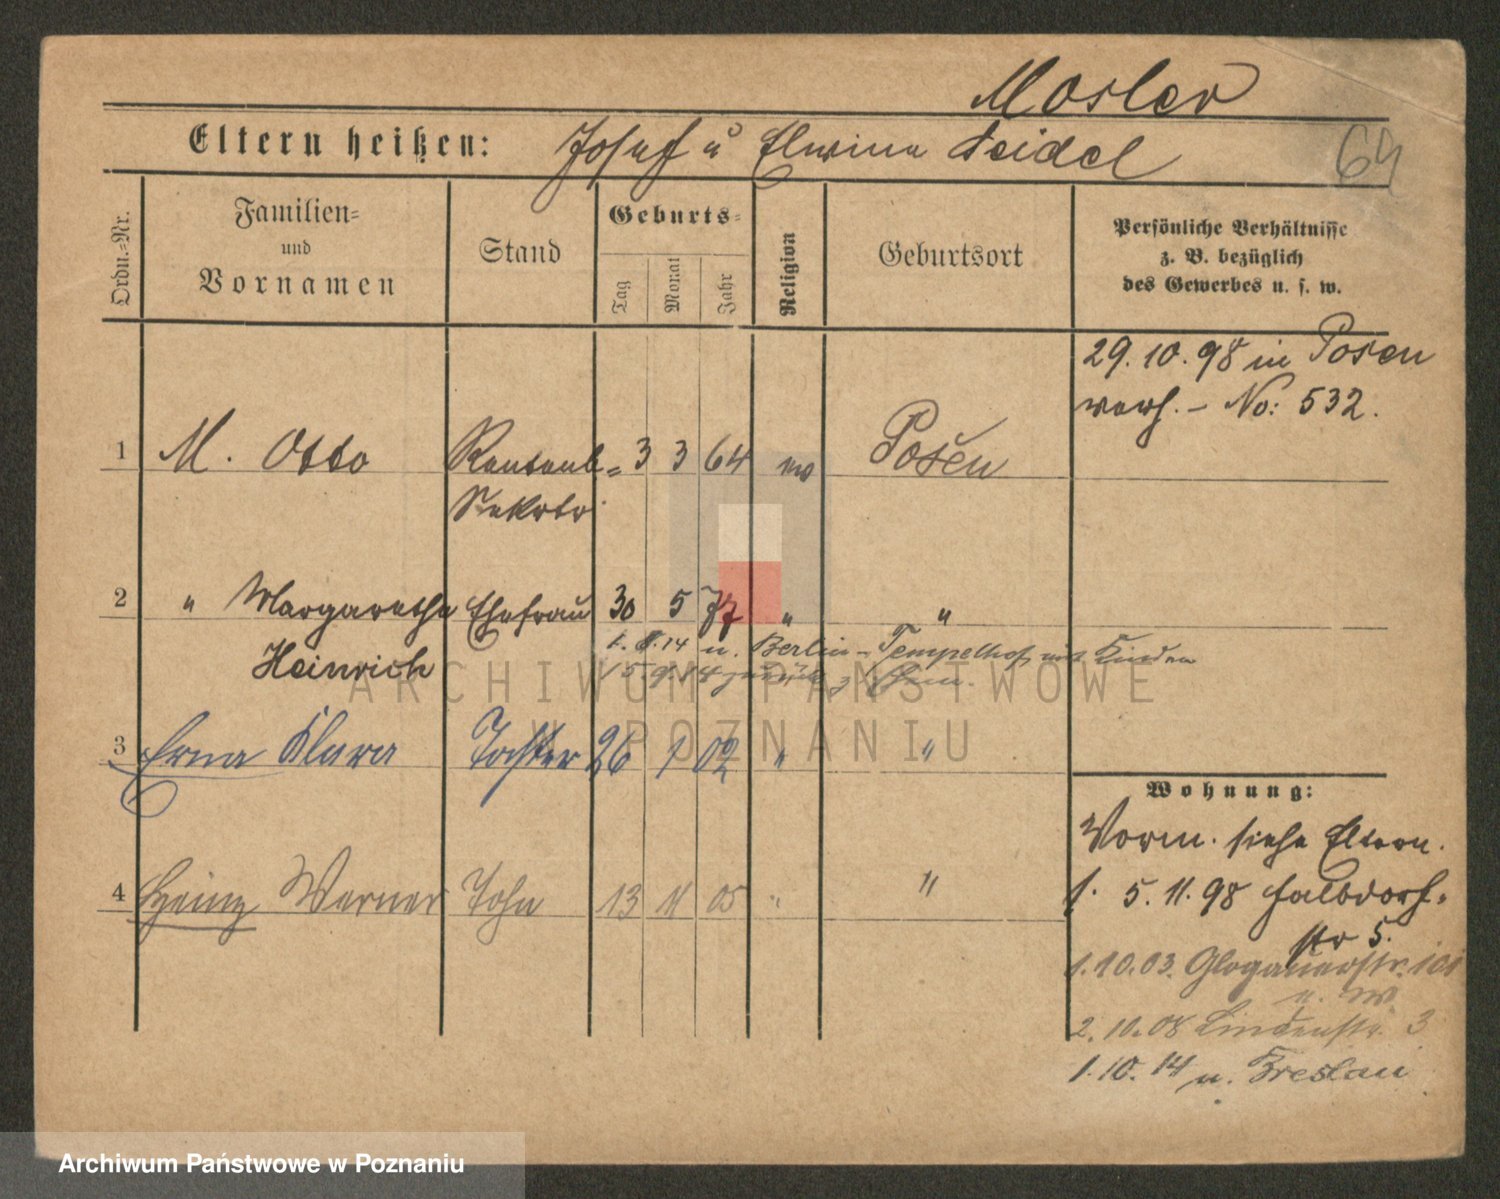 Mosler
Eltern heißen: Josef u Elwine Seidel
64
Ordn.=Nr.
Familien=
und
Vornamen
Stand
Geburts=
Tag
Monat
Jahr
Religion
Geburtsort
Persönliche Verhältnisse
z. B. bezüglich
des Gewerbes u. s. w.
29. 10. 98 in Posen
verh. – No: 532.
1 M. Otto Rentenb= 3 3 64 ev Posen
Sekretr
2 " Margarethe Ehefrau 30 5 77 " "
Heinrich
1. 8. 14 n. Berlin – Tempelhof mit Kindern
5. 9. 14 zurück z.
ARCHIWUM PAŃSTWOWE
W POZNANIU
3 Erna Klara Tochter 26 1 02 " "
4 Heinz Werner Sohn 13 11 05 " "
Wohnung:
Vorm. siehe Eltern.
1. 5. 11. 98 Halbdorf-
str 5.
1. 10. 03. Glogauerstr. 101
2. 10. 08 Lindenstr. 3
1. 10. 14 n. Breslau
Archiwum Państwowe w Poznaniu